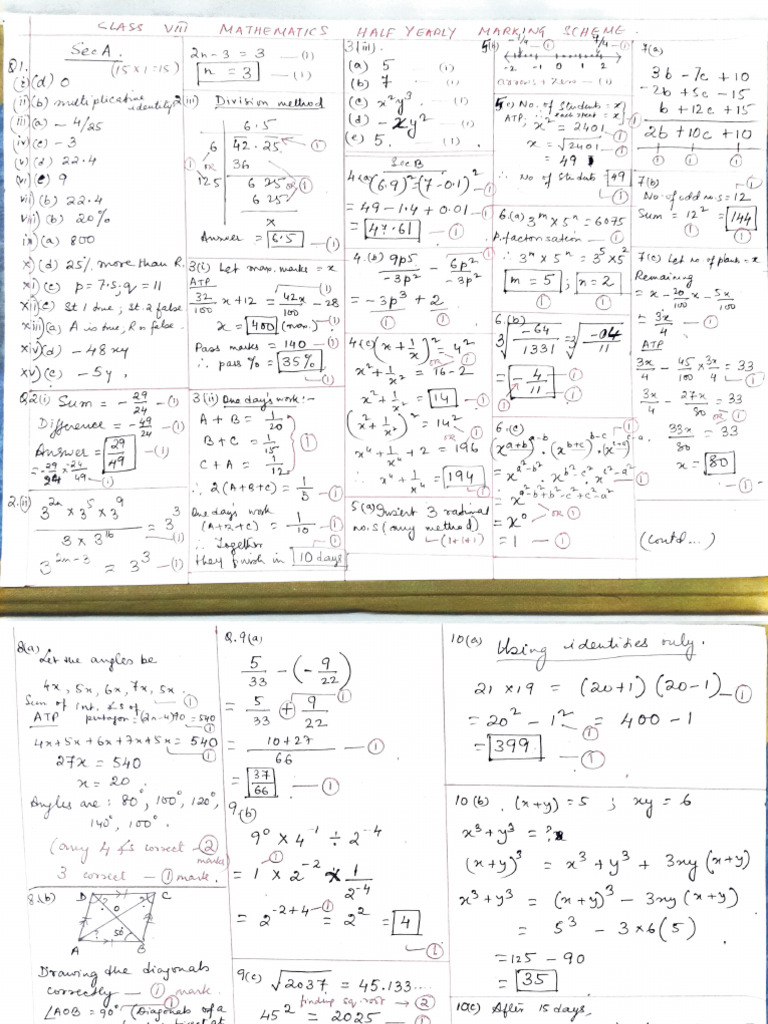 CLASS VIII MATHEMATICS HALF YEARLY MARKING SCHEME.
Sec A.
Q1. (15 x 1 = 15)
(i) (d) 0
(ii) (b) multiplicative identity
(iii) (a) - 4/25
(iv) (c) - 3
(v) (d) 22.4
(vi) (c) 9
vii) (b) 22.4
viii) (b) 20%
ix) (a) 800
x) (d) 25% more than R.
xi) (c) p = 7.5; q = 11
xii) (c) St 1 true; St. 2 false
xiii) (a) A is true, R is false.
xiv) (d) - 48xy
xv) (c) - 5y.
Q2(i) Sum = -29/24 - (1)
Difference = -49/24 - (1)
Answer = 29/49
= -29/24 x -24/49 (1)
2.(ii) 3^2n x 3^5 x 3^9
3 x 3^16
= 3^3 (1)
3^2n-3 = 3^3 - (1)
2n - 3 = 3 - (1)
n = 3 - (1)
2(iii) Division method
6.5
6 42.25 (1)
36
125 625 OR (1)
625
x
Answer = 6.5 - (1)
3(i) Let max. marks = x
ATP
32/100 x + 12 = 42x/100 - 28 (1)
x = 400 (max.) (1)
Pass marks = 140 - (1)
∴ pass % = 35% (1)
3(ii) One day's work :-
A + B = 1/20
B + C = 1/15 (1)
C + A = 1/12
∴ 2(A+B+C) = 1/5 (1)
One day's work
(A+B+C) = 1/10 (1)
∴ Together
they finish in 10 days
3(iii).
(a) 5 (1)
(b) 7 (1)
(c) x²y³ (1)
(d) - xy² (1)
(e) 5. (1)
Sec B
4.(a) (6.9)² = (7 - 0.1)² (1)
= 49 - 1.4 + 0.01 (1)
= 47.61 (1)
4.(b) 9p5/-3p² - 6p²/-3p²
= -3p³ + 2
(1) (1)
4(c) (x + 1/x)² = 4²
x² + 1/x² = 16 - 2
x² + 1/x² = 14 (1)
(x² + 1/x²)² = 14² OR (1)
x⁴ + 1/x⁴ + 2 = 196
∴ x⁴ + 1/x⁴ = 194 (1)
5(a) Insert 3 rational
no.s (any method)
(1+1+1)
-2 -1 0 1 2
arrows + zero - (1)
5(c) No. of students = x
ATP, x² = 2401 (1)
x = √2401
= 49
∴ No of students = 49 (1)
6.(a) 3^m x 5^n = 6075
P.factorisation - (1)
∴ 3^m x 5^n = 3^5 x 5^2
m = 5 ; n = 2
6.(b)
∛-64/1331
= -4/11 (1)
6.(c)
(x^a+b)^a-b . (x^b+c)^b-c . (x^c+a)^c-a
= x^a²-b² . x^b²-c² . x^c²-a² (1)
= x^a²-b²+b²-c²+c²-a²
= x⁰ OR (1)
= 1 - (1)
7(a)
3b - 7c + 10
- 2b + 5c - 15
b + 12c + 15
2b + 10c + 10
(1) (1) (1)
7(b) (1)
No. of odd no.s = 12
Sum = 12² = 144 (1)
7(c) Let no of plants = x
Remaining
= x - 20x/100 - 5x/100
= 3x/4 (1)
ATP
3x/4 - 45/100 x 3x/4 = 33 (1)
3x/4 - 27x/80 = 33 OR
33x/80 = 33
x = 80 (1)
(contd...)
8(a)
Let the angles be
4x, 5x, 6x, 7x, 5x. (1)
Sum of int. ∠s of
ATP pentagon = (2n-4)90 = 540
4x+5x+6x+7x+5x = 540 (1)
27x = 540
x = 20.
Angles are : 80°, 100°, 120°,
140°, 100°.
(any 4 ∠s correct - (2) marks)
3 correct - (1) mark.
8.(b) D C
O
50°
A B
Drawing the diagonals
correctly - (1) mark.
∠AOB = 90° (Diagonals of a
Q.9(a)
5/33 - (-9/22)
= 5/33 + 9/22 (1)
= 10 + 27/66 (1)
= 37/66 (1)
9(b)
9⁰ x 4⁻¹ ÷ 2⁻⁴
= 1 x 2⁻² x 1/2⁻⁴ (1)
= 2⁻²⁺⁴ (1) = 2² = 4 (1)
9(c) √2037 = 45.133...
finding sq. root → (2)
45² = 2025 (1)
10(a) Using identities only.
21 x 19 = (20+1) (20-1) (1)
= 20² - 1² = 400 - 1 (1)
= 399 (1)
10(b). (x+y) = 5 ; xy = 6
x³ + y³ = ?
(x+y)³ = x³ + y³ + 3xy (x+y)
x³ + y³ = (x+y)³ - 3xy (x+y)
= 5³ - 3 x 6 (5)
= 125 - 90
= 35
10(c) After 15 days,